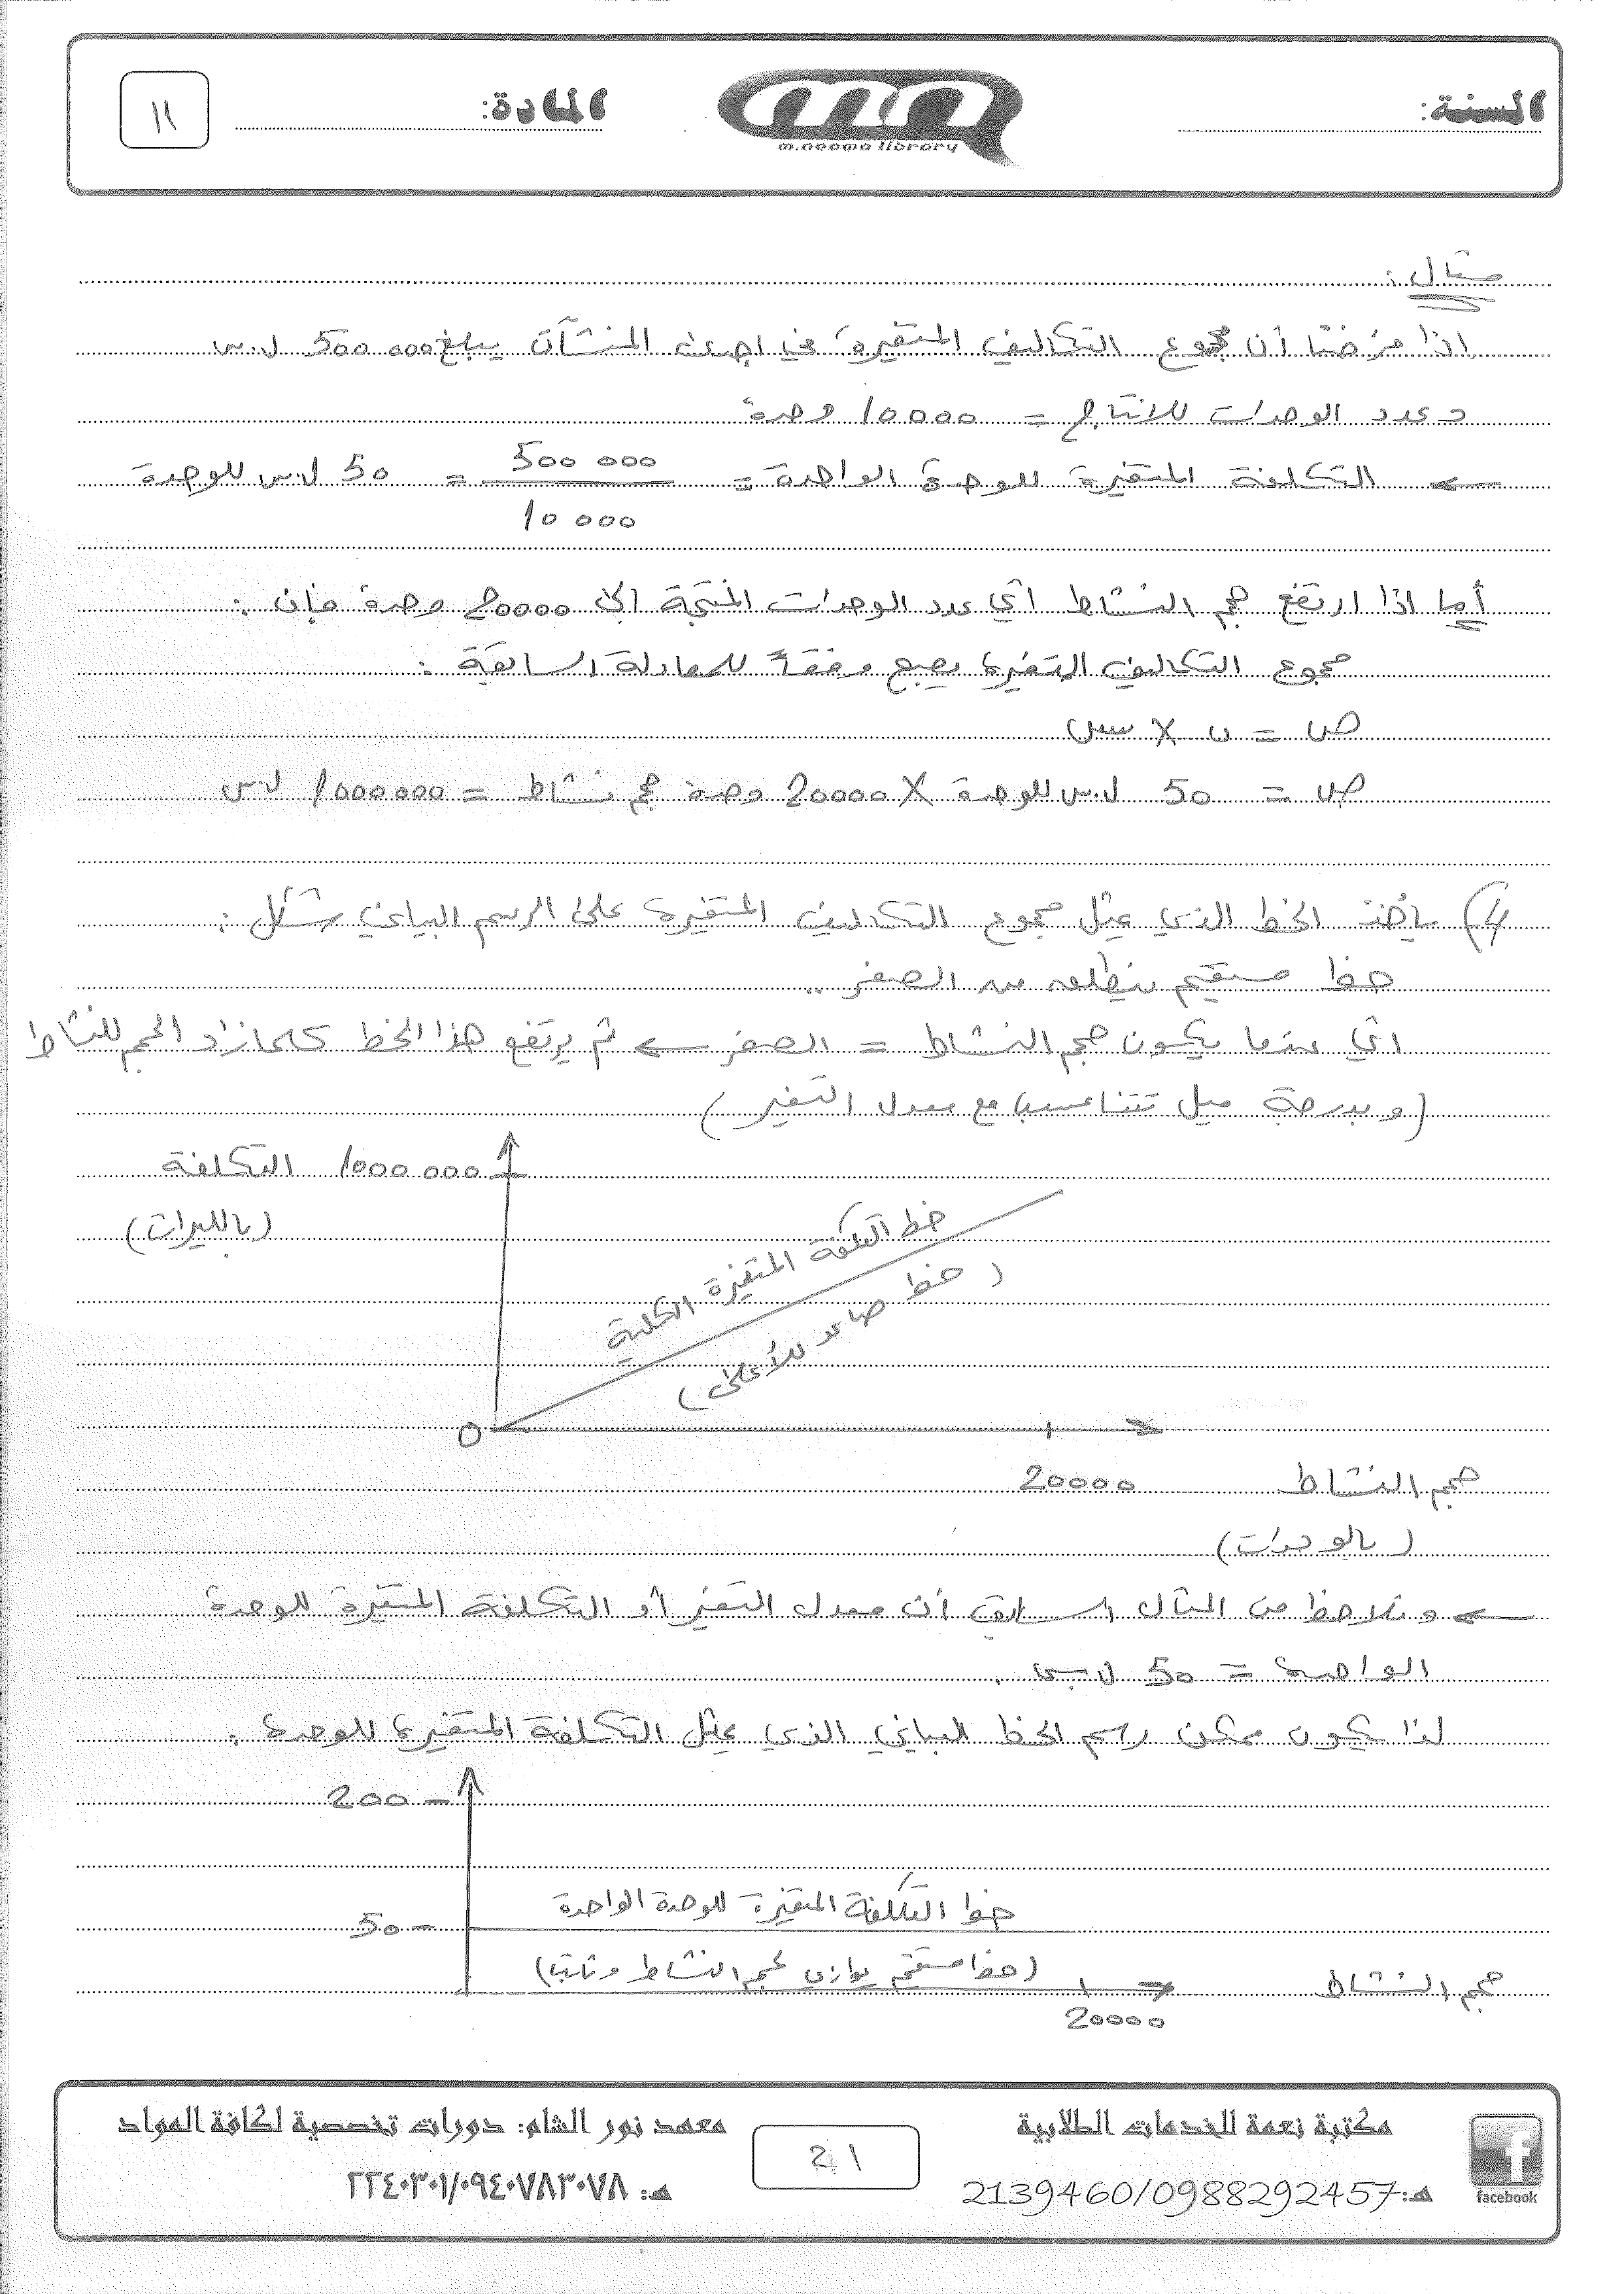 السنة:
m.neama library
المادة:
١١
مثال :
اذا فرضنا أن مجموع التكاليف المتغيرة في احدى المنشآت يبلغ 500 000 ل.س
و عدد الوحدات للانتاج = 10000 وحدة
← التكلفة المتغيرة للوحدة الواحدة = 500 000 / 10 000 = 50 ل.س للوحدة
أما اذا ارتفع حجم النشاط أي عدد الوحدات المنتجة الى 20000 وحدة فإن :
مجموع التكاليف المتغيرة يصبح وفقاً للمعادلة السابقة :
ص = ن × س
ص = 50 ل.س للوحدة × 20000 وحدة حجم نشاط = 1000000 ل.س
4) يأخذ الخط الذي يمثل مجموع التكاليف المتغيرة على الرسم البياني شكل :
خط مستقيم ينطلق من الصفر ..
أي عندما يكون حجم النشاط = الصفر ← ثم يرتفع هذا الخط كلما زاد الحجم للنشاط
(و بدرجة ميل تتناسب مع معدل التغير)
التكلفة 1000 000
(بالليرات)
خط التكلفة المتغيرة الكلية
(خط صاعد للأعلى)
0
حجم النشاط 20000
(بالوحدات)
← و نلاحظ من المثال السابق أن معدل التغير أو التكلفة المتغيرة للوحدة
الواحدة = 50 ل.س .
لذا يكون ممكن رسم الخط البياني الذي يمثل التكلفة المتغيرة للوحدة :
200
خط التكلفة المتغيرة للوحدة الواحدة
50
(خط مستقيم يوازي حجم النشاط و ثابت)
حجم النشاط
20000
facebook
مكتبة نعمة للخدمات الطلابية
هـ: 2139460/0988292457
21
معهد نور الشام: دورات تخصصية لكافة المواد
هـ: ٢٢٤٠٣٠١/٠٩٤٠٧٨٣٠٧٨